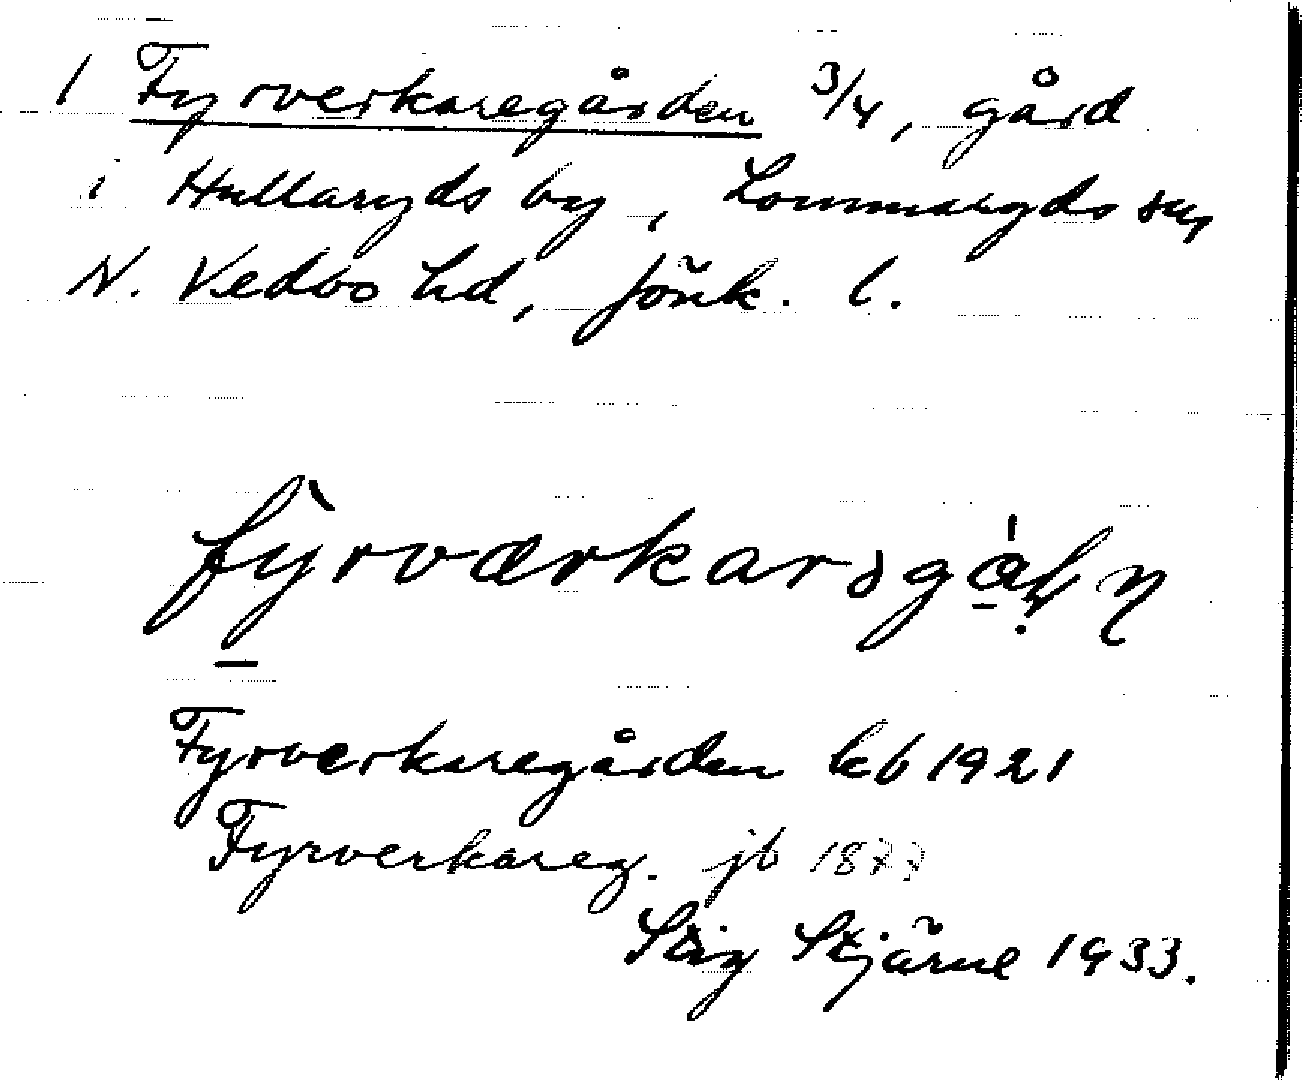 1 Fyrverkaregården 3/4, gård
i Hullaryds by, Lommaryds sn,
N. Vedbo hd, Jönk. l.
Fyrverkaregården kb 1921
Fyrverkareg. jb 1877
Stig Stjärne 1933.